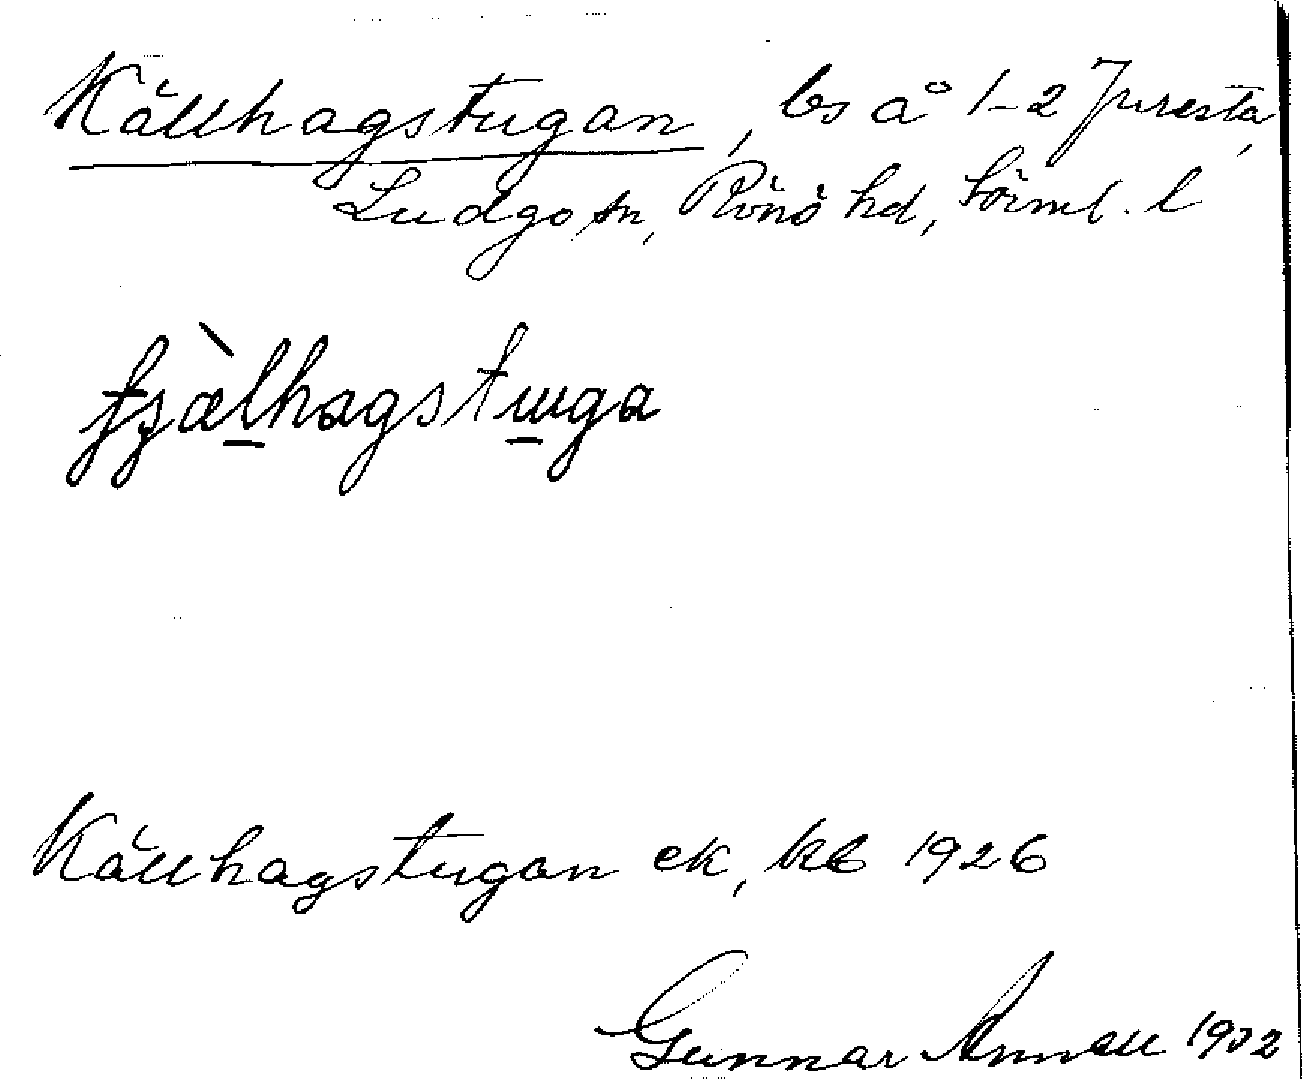 Källhagstugan, bs å 1-2 Juresta,
Ludgo sn, Rönö hd, Sörml. l
Källhagstugan ek, kb 1926
Gunnar 1932